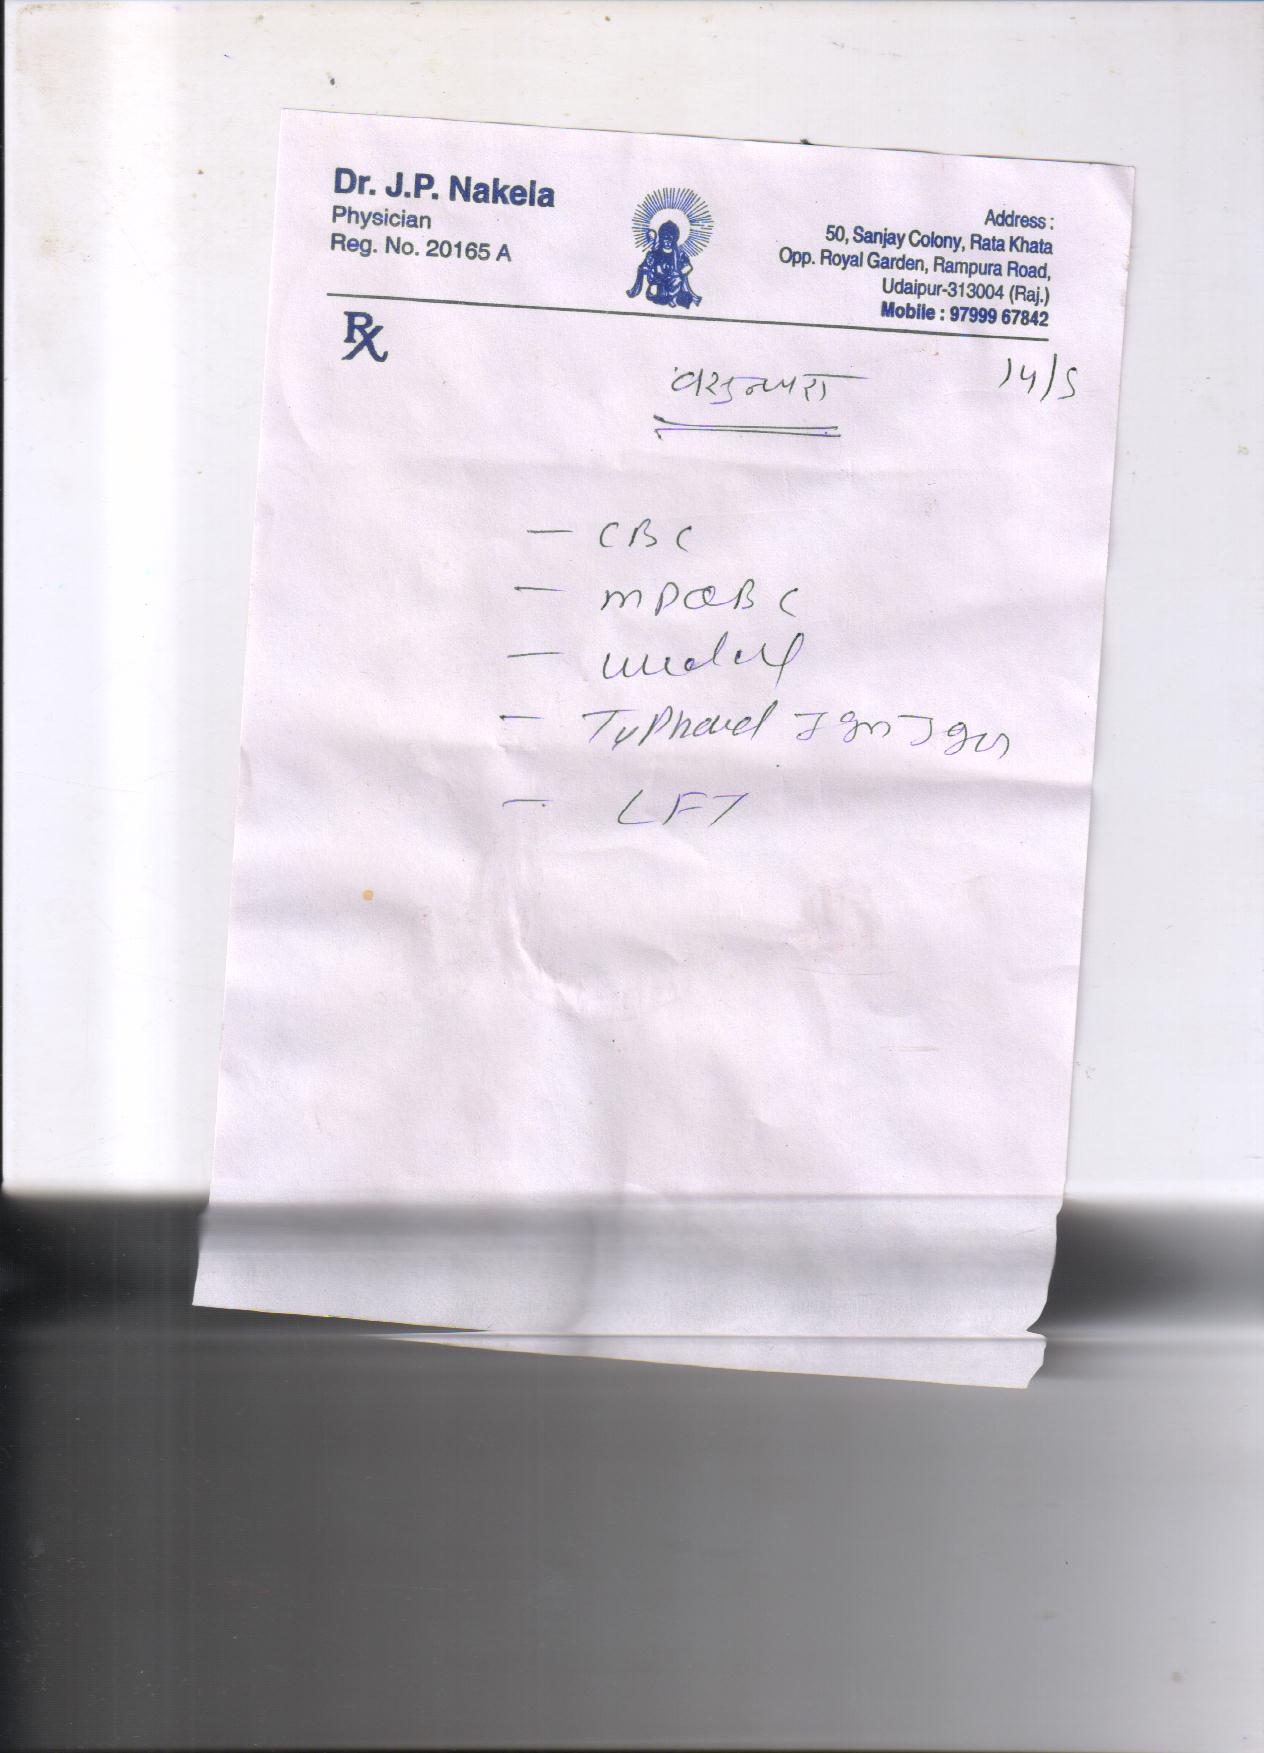 Dr. J.P. Nakela
Physician
Reg. No. 20165 A
Address :
50, Sanjay Colony, Rata Khata
Opp. Royal Garden, Rampura Road,
Udaipur-313004 (Raj.)
Mobile : 97999 67842
Rx
14/5
- CBC
- MP@BC
- widal
- Typhoid IgM IgG
- LFT